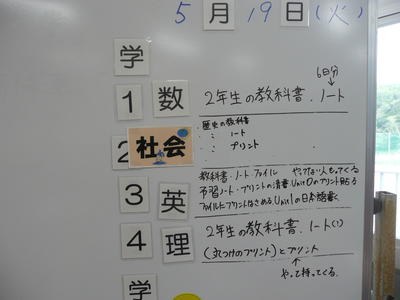 5月19日(火)
学
6日分
1 数 2年生の教科書、ノート
2 社会 ・歴史の教科書
〃 ノート
〃 プリント
3 英 教科書・ノート・ファイル やってない人もってくる
予習ノート・プリントの清書 Unit0のプリント
ファイルにプリントはさめる Unit1の日本語書く
4 理 2年生の教科書、ノート(1)
(丸つけのプリント)とプリント
やって持ってくる。
学